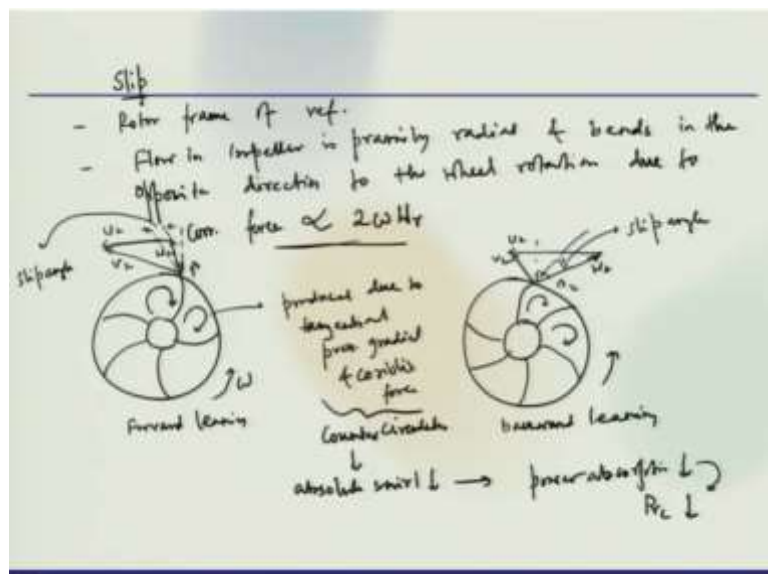 Slip
- Rotor frame of ref.
- Flow in impeller is primarily radial & bends in the
opposite direction to the wheel rotation due to
Corr. force ∝ 2ωWr
slip angle
slip angle
produced due to
tangential
press gradient
& coriolis
force
ω
Forward leaning
Counter Circulation
backward leaning
↓
absolute swirl ↓ → power absorption ↓
Prc ↓